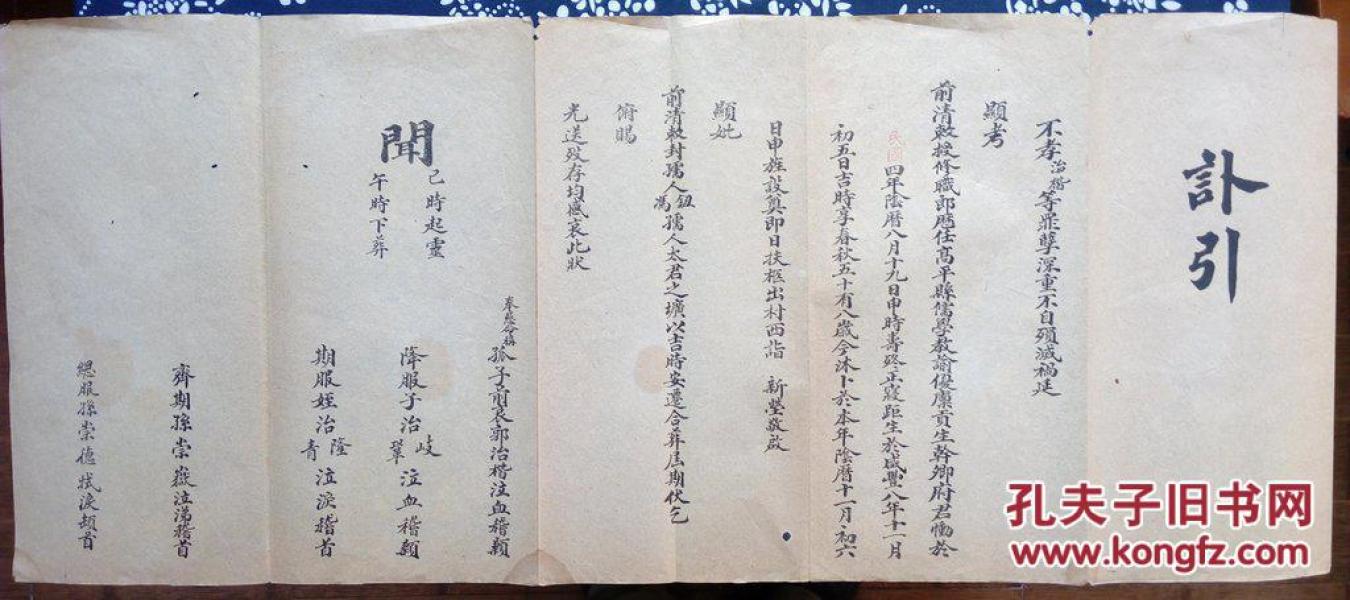 訃引
不孝治楷等罪孽深重不自殞滅禍延
顯考
前清敕授修職郎歷任高平縣儒學教諭優廩貢生幹卿府君慟於
民國四年陰曆八月十九日申時壽終正寢距生於咸豐八年十一月
初五日吉時享春秋五十有八歲今沐卜於本年陰曆十一月初六
日申旌設奠即日扶柩出村西詣 新塋敬啟
顯妣
前清敕封孺人鈕馮孺人太君之壙以吉時安遷合葬屆期伏乞
俯賜
光送歿存均感哀此狀
聞
巳時起靈
午時下葬
奉慈命稱
孤子前哀郭治楷泣血稽顙
降服子治岐鞏泣血稽顙
期服姪治隆青泣淚稽首
齊期孫崇嶽泣涕稽首
緦服孫崇德拭淚頓首
孔夫子旧书网
www.kongfz.com